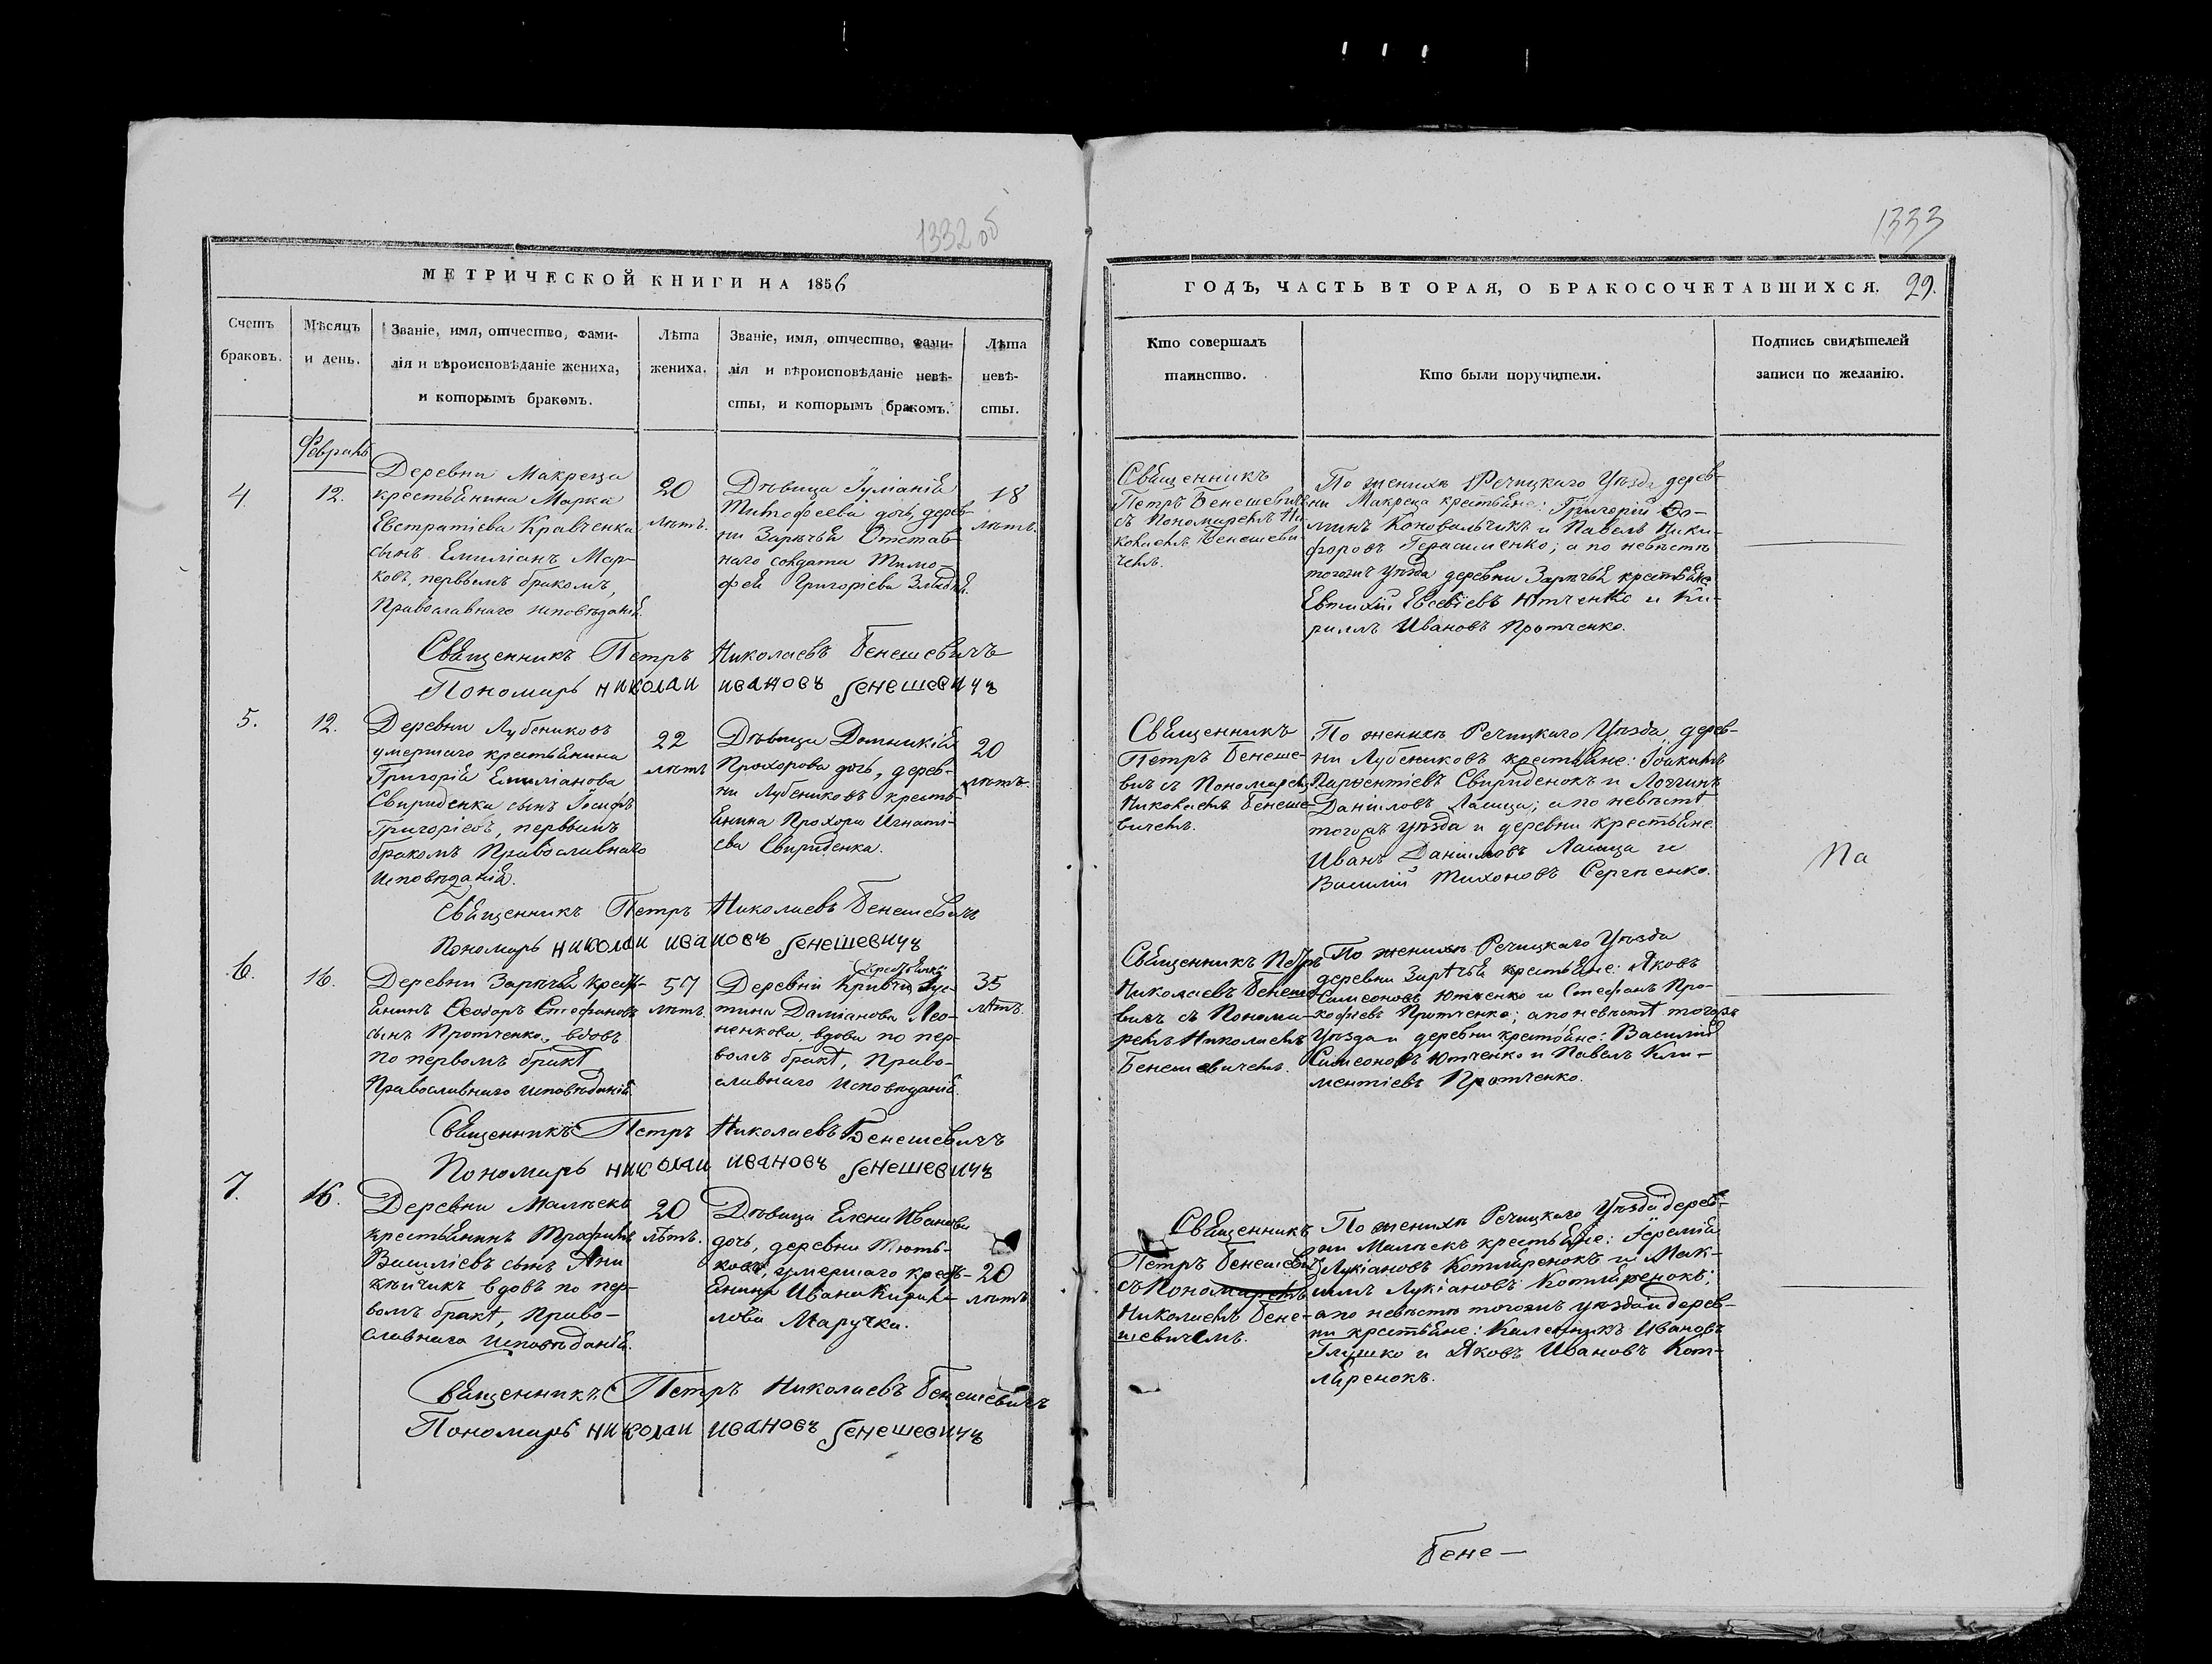 1332 об
МЕТРИЧЕСКОЙ КНИГИ НА 1856
Счетъ браковъ.
Мѣсяцъ и день.
Званіе, имя, отчество, фами-
лія и вѣроисповѣданіе жениха,
и которымъ бракомъ.
Лѣта жениха.
Званіе, имя, отчество, фами-
лія и вѣроисповѣданіе невѣ-
сты, и которымъ бракомъ.
Лѣта невѣ-
сты.
Февраль
4.
12.
Деревни Макреца
крестьянина Марка
Евстратіева Кравченка
сынъ Емиліанъ Мар-
ковъ, первымъ бракомъ,
Православнаго исповѣданія.
20
лѣтъ.
Дѣвица Іуліанія
Тимофеева дочь, дерев-
ни Зарѣчья Отстав-
наго солдата Тимо-
фея Григоріева
18
лѣтъ.
Священникъ Петръ Николаевъ Бенешевичъ
Пономарь Николаи Ивановъ Бенешевичъ
5.
12.
Деревни Лубениковъ
умершаго крестьянина
Григорія Емиліанова
Свириденка сынъ Іосифъ
Григоріевъ, первымъ
бракомъ Православнаго
Исповѣданія.
22
лѣтъ
Дѣвица Домникія
Прохорова дочь, дерев-
ни Лубениковъ кресть-
янина Прохора Игнаті-
ева Свириденка.
20
лѣтъ.
Священникъ Петръ Николаевъ Бенешевичъ
Пономарь Николаи Ивановъ Бенешевичъ
6.
16.
Деревни Зарѣчья крест-
янинъ Ѳеодоръ Стефановъ
сынъ Протченко, вдовъ
по первомъ бракѣ
Православнаго исповѣданія.
57
лѣтъ.
крестьянка
Деревни Кривча Іус-
тина Даміанова Лео-
ненкова, вдова по пер-
вомъ бракѣ, Право-
славнаго исповѣданія.
35
лѣтъ.
Священникъ Петръ Николаевъ Бенешевичъ
Пономарь Николаи Ивановъ Бенешевичъ
7.
16.
Деревни Малѣекъ
крестьянинъ Трофимъ
Василіевъ сынъ
вдовъ по пер-
вомъ бракѣ, Право-
славнаго исповѣданія.
20
лѣтъ.
Дѣвица Елена Иванова
дочь, деревни
умершаго крест-
янина Ивана Кирил-
лова Маручка.
20
лѣтъ
Священникъ Петръ Николаевъ Бенешевичъ
Пономарь Николаи Ивановъ Бенешевичъ
1333
ГОДЪ, ЧАСТЬ ВТОРАЯ, О БРАКОСОЧЕТАВШИХСЯ.
29.
Кто совершалъ
таинство.
Кто были поручители.
Подпись свидѣтелей
записи по желанію.
Священникъ
Петръ Бенешевичъ
съ Пономаремъ Ни-
колаемъ Бенешеви-
чемъ.
По женихѣ Речицкаго Уѣзда дерев-
ни Макреца крестьяне: Григорій Ѳо-
минъ Коновальчикъ и Павелъ Ники-
форовъ Герасименко; а по невѣстѣ
тогожъ уѣзда деревни Зарѣчья крестьяне
Евтихій Евсевіевъ Ютченко и Ки-
риллъ Ивановъ Протченко.
Священникъ
Петръ Бенеше-
вичъ съ Пономаремъ
Николаемъ Бенеше-
вичемъ.
По женихѣ Речицкаго Уѣзда, дерев-
ни Лубениковъ крестьяне: Іоакимъ
Парфентіевъ Свириденокъ и Логгинъ
Даніиловъ Лапица; а по невѣстѣ
тогожъ уѣзда и деревни крестьяне.
Иванъ Даніиловъ Лапица и
Василій Тихоновъ Сергѣенко.
Священникъ Петръ
Николаевъ Бенеше-
вичъ съ Понома-
ремъ Николаемъ
Бенешевичемъ.
По женихѣ Речицкаго Уѣзда
деревни Зарѣчья крестьяне: Яковъ
Симеоновъ Ютченко и Стефанъ Про-
кофіевъ Протченко; а по невѣстѣ тогожъ
Уѣзда и деревни крестьяне: Василій
Симеоновъ Ютченко и Павелъ Кли-
ментіевъ Протченко.
Священникъ
Петръ Бенешевичъ
съ Пономаремъ
Николаемъ Бене-
шевичемъ.
По женихѣ Речицкаго Уѣзда дерев-
ни Малѣекъ крестьяне: Іеремія
Лукіановъ Котляренокъ и Мак-
симъ Лукіановъ Котляренокъ;
а по невѣстѣ тогожъ уѣзда и дерев-
ни крестьяне: Каленникъ Ивановъ
Глушко и Яковъ Ивановъ Кот-
ляренокъ.
Бене-